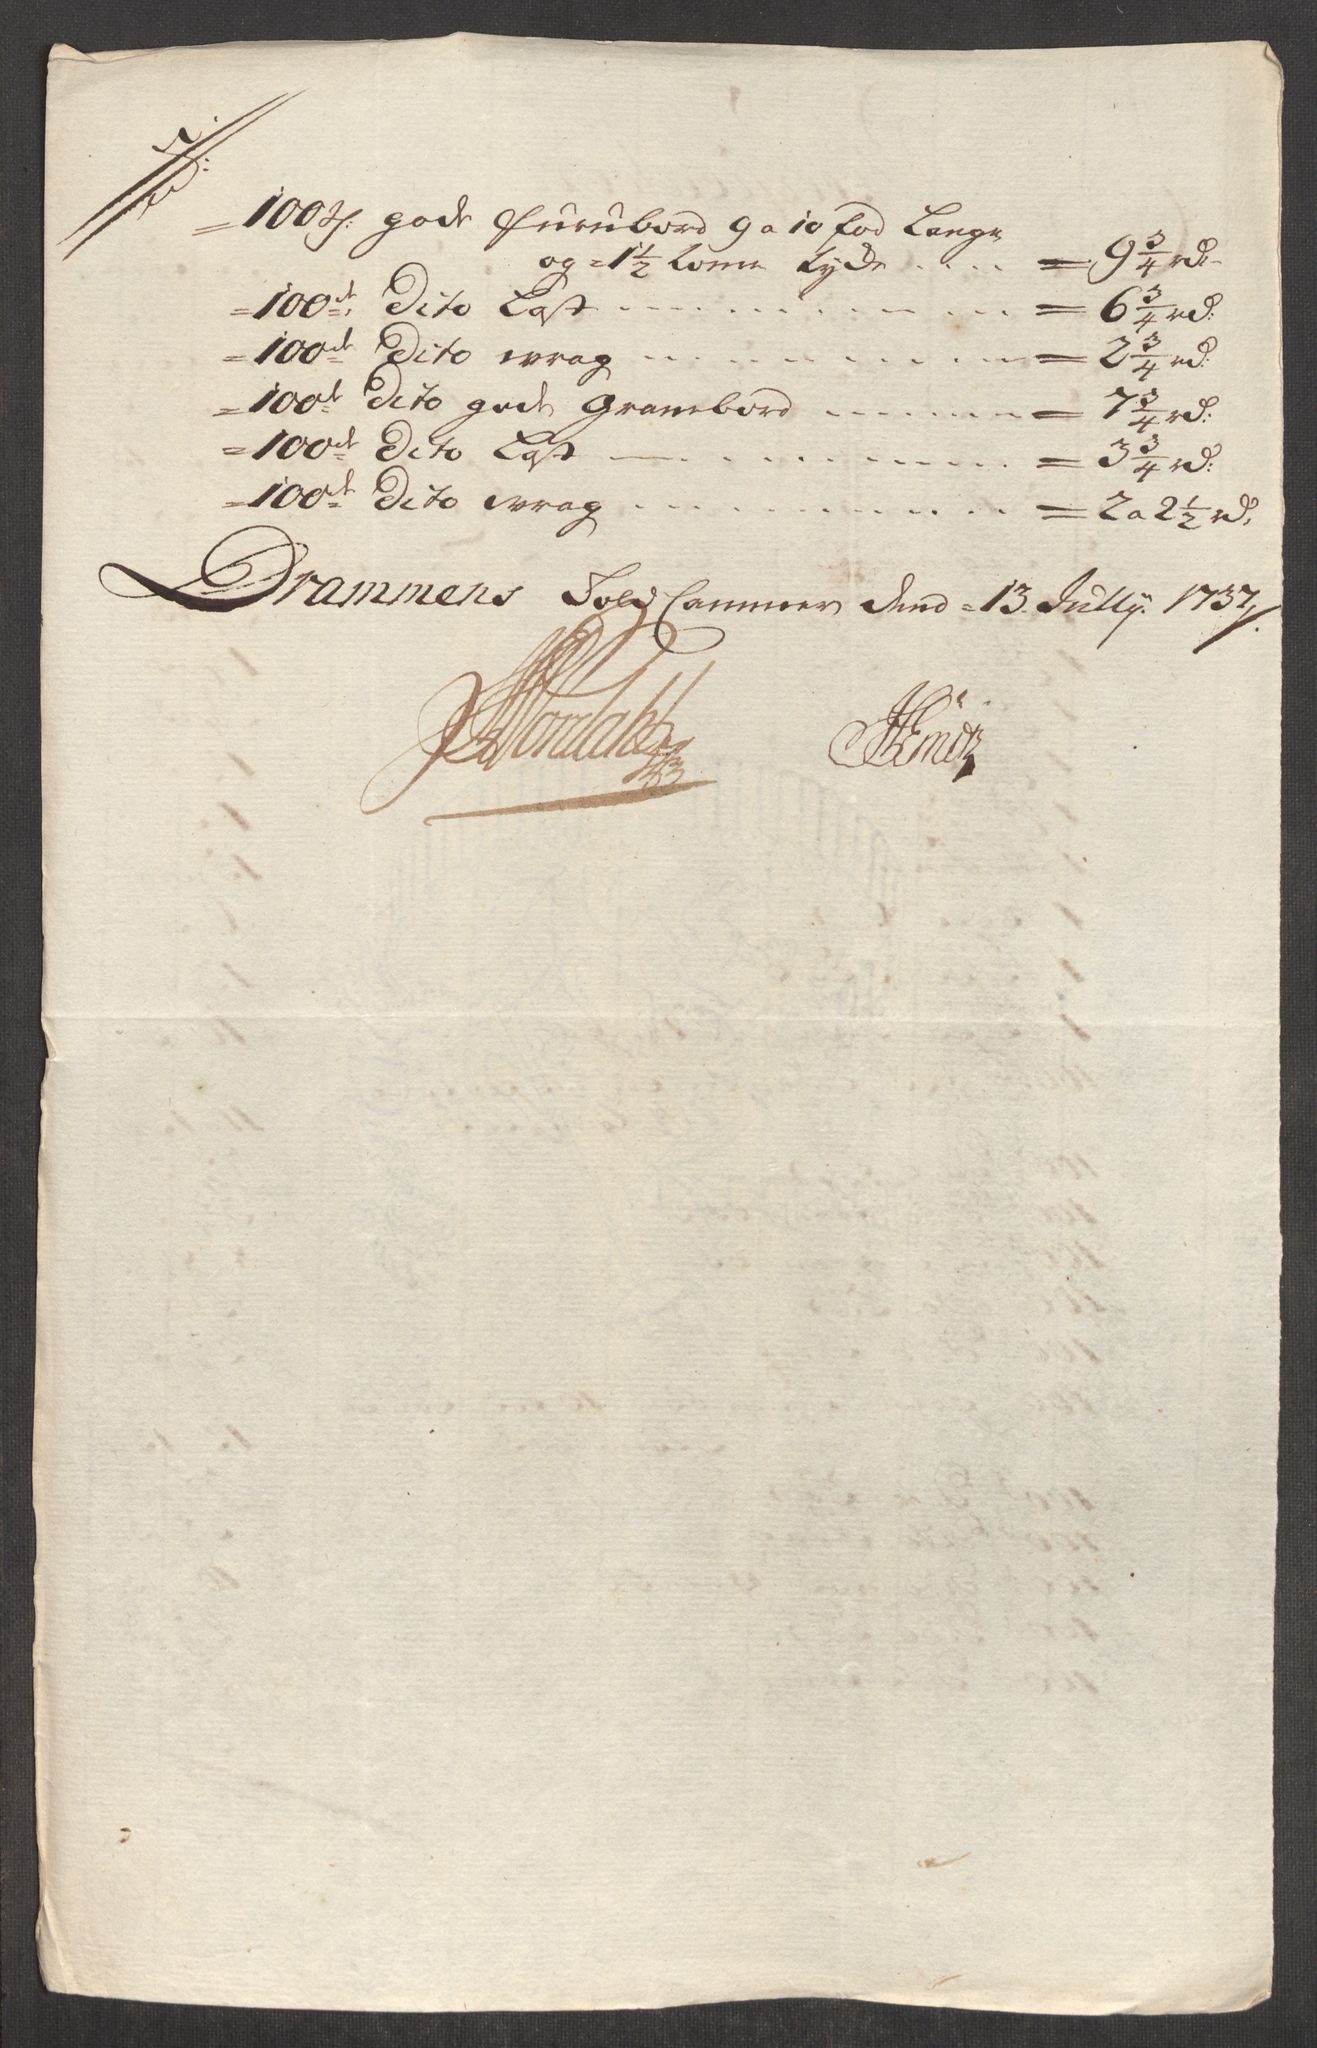 =100de gode Furubord 9 a 10 fod Lange
og =1½ tome tyde .... = 9¾ rd:
=100de Dito Last ........ = 6¾ rd:
=100de Dito wrag ........ = 2¾ rd:
=100de Dito gode Granebord ........ = 7¾ rd:
=100de Dito Last ........ = 3¾ rd:
=100de Dito wrag ........ = 2 a 2½ rd:
Drammens Told Cammer dend =13. Jully. 1737/.